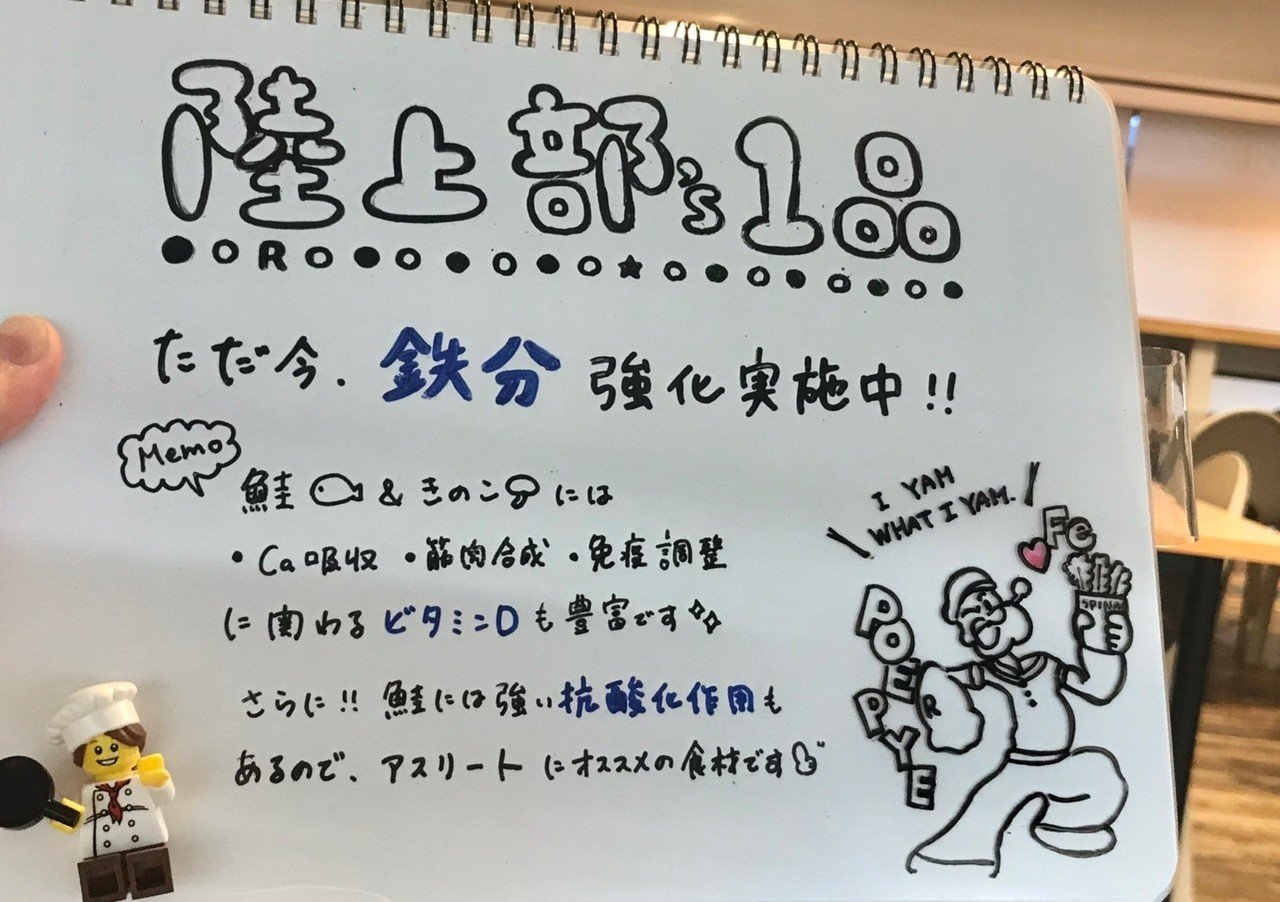 陸上部's 1品
R
ただ今、鉄分強化実施中!!
Memo
鮭&きのこには
・Ca吸収・筋肉合成・免疫調整
に関わるビタミンDも豊富です
さらに!!鮭には強い抗酸化作用も
あるので、アスリートにオススメの食材です
I YAM
WHAT I YAM.
Fe
SPINA
POPEYE
R